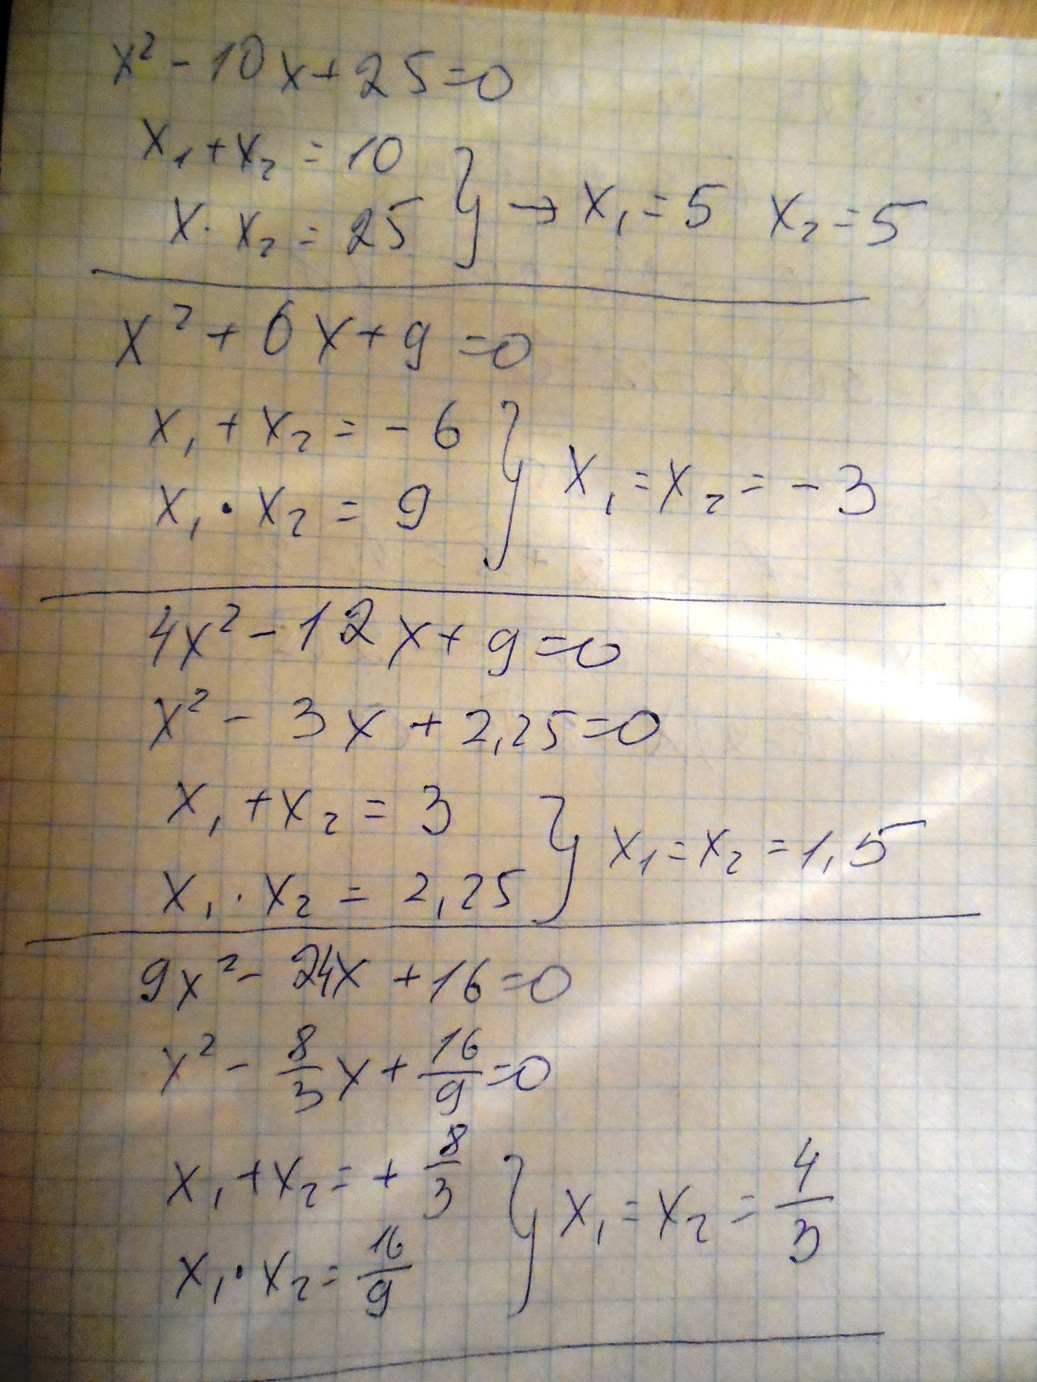 x² - 10x + 25 = 0
x₁ + x₂ = 10
x · x₂ = 25 } → x₁ = 5 x₂ = 5
x² + 6x + 9 = 0
x₁ + x₂ = - 6
x₁ · x₂ = 9 } x₁ = x₂ = - 3
4x² - 12x + 9 = 0
x² - 3x + 2,25 = 0
x₁ + x₂ = 3
x₁ · x₂ = 2,25 } x₁ = x₂ = 1,5
9x² - 24x + 16 = 0
x² - 8/3 x + 16/9 = 0
x₁ + x₂ = + 8/3
x₁ · x₂ = 16/9 } x₁ = x₂ = 4/3